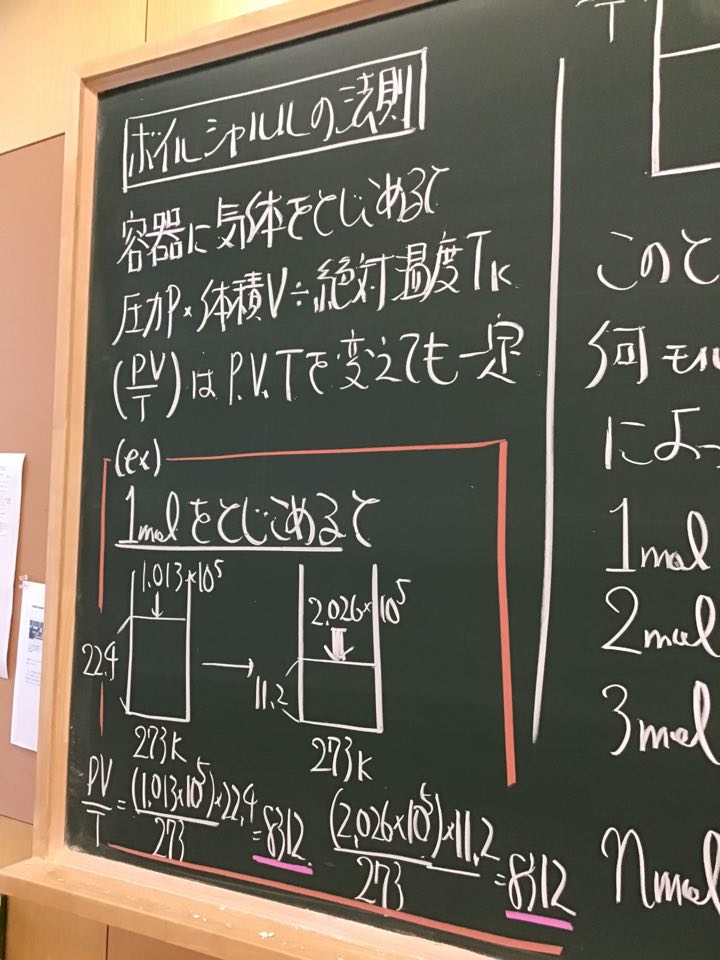 ボイルシャルルの法則
容器に気体をとじこめると
圧力P×体積V÷絶対温度TK
(PV/T)はP.V.Tを変えても一定
(ex)
1molをとじこめると
1.013×10⁵
22.4
273K
→
2.026×10⁵
11.2
273K
PV/T=(1.013×10⁵)×22.4/273=8312
(2.026×10⁵)×11.2/273=8312
T
このと
何モル
によっ
1mol
2mol
3mol
nmol